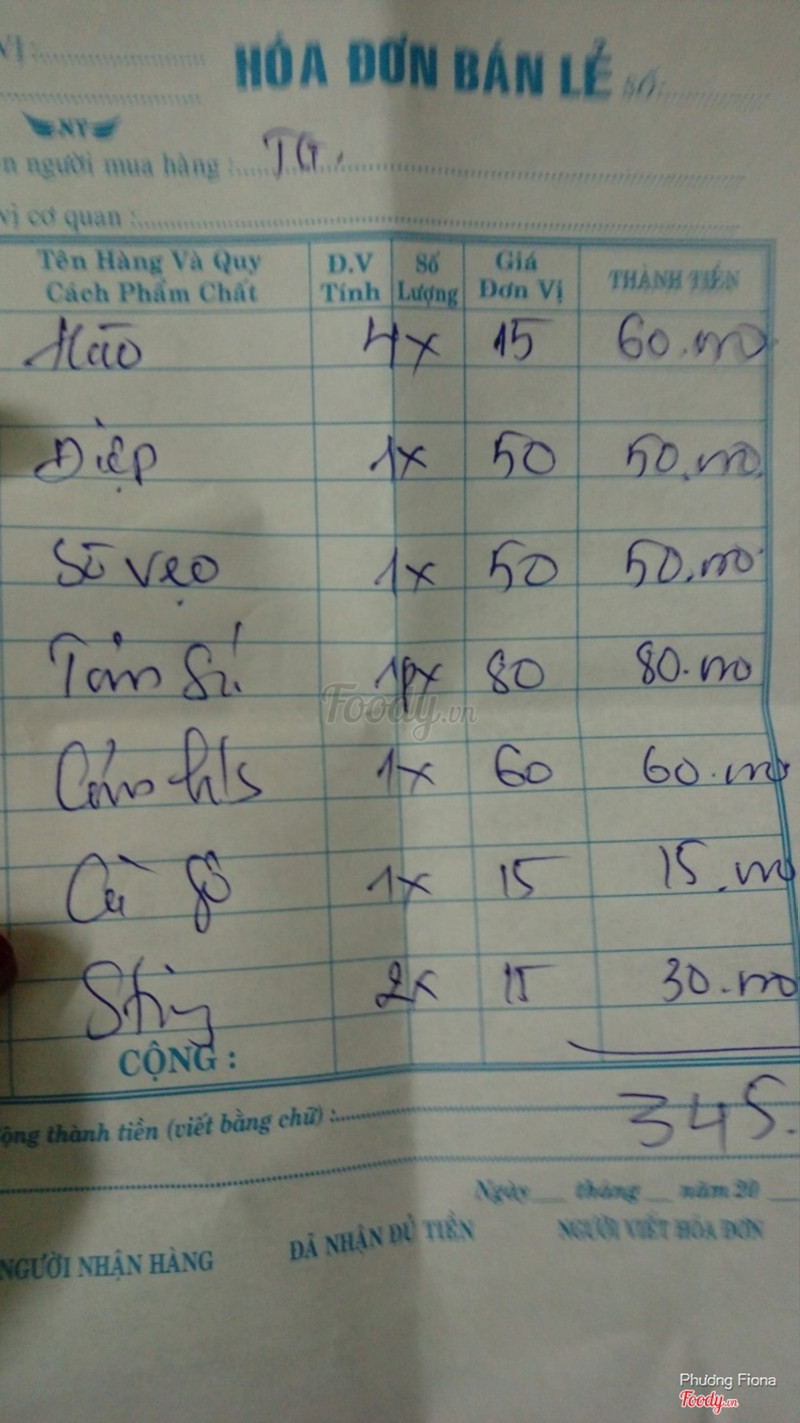 VỊ:
HÓA ĐƠN BÁN LẺ Số:
NT
n người mua hàng : TG.
vị cơ quan :
Tên Hàng Và Quy Cách Phẩm Chất Đ.V Tính Số Lượng Giá Đơn Vị THÀNH TIỀN
Hào 4x 15 60.000
Điệp 1x 50 50.000
Sò vẹo 1x 50 50.000
Tôm Sú 1px 80 80.000
Cơm h/s 1x 60 60.000
Cà gô 1x 15 15.000
Sting 2x 15 30.000
CỘNG :
ộng thành tiền (viết bằng chữ) : 345.
Ngày tháng năm 20
NGƯỜI NHẬN HÀNG ĐÃ NHẬN ĐỦ TIỀN NGƯỜI VIẾT HÓA ĐƠN
Foody.vn
Phương Fiona
Foody.vn